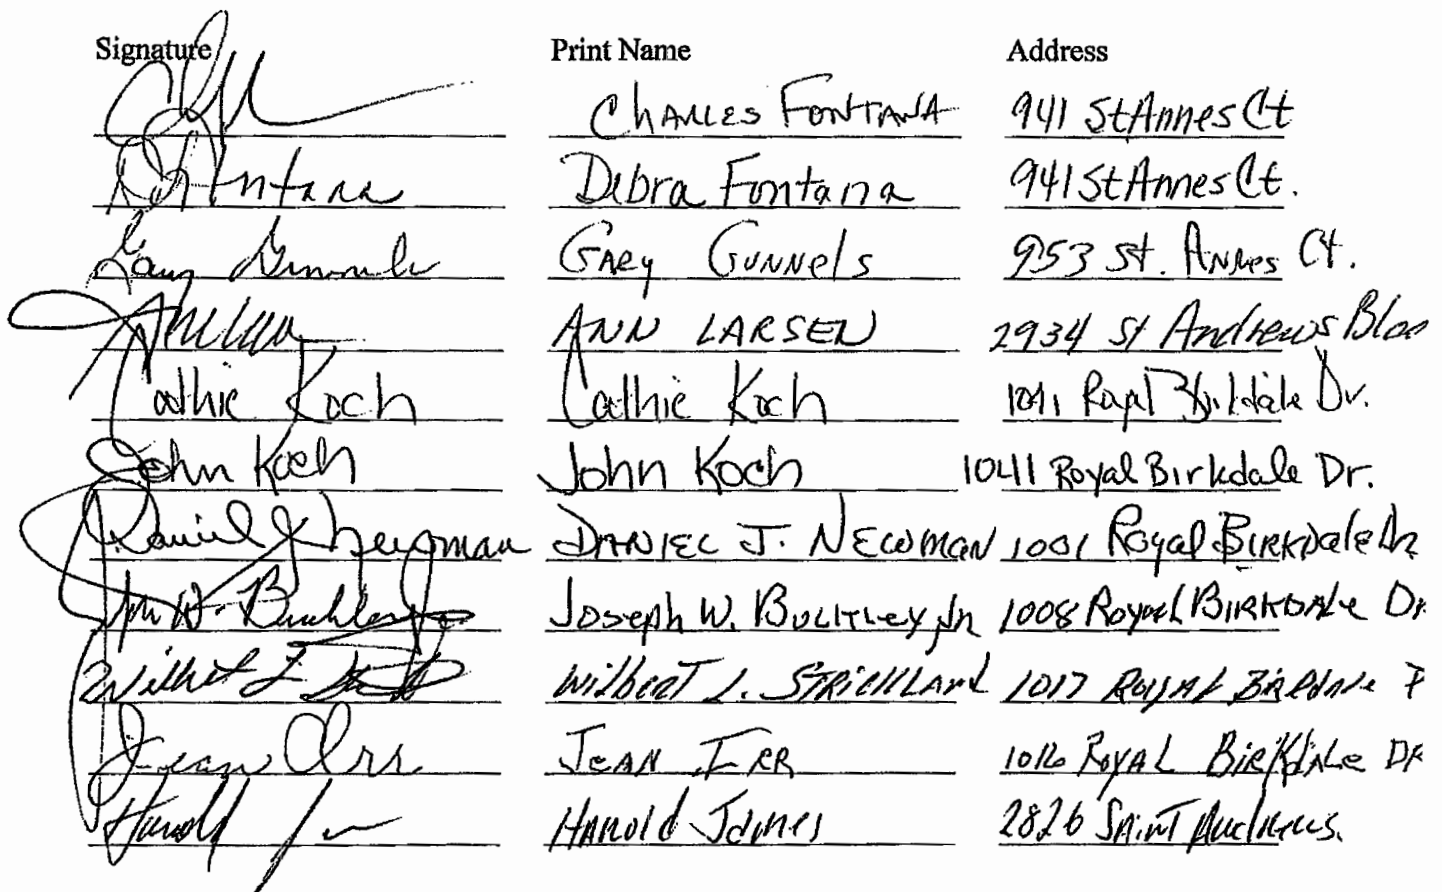 Signature Print Name Address
Charles Fontana 941 St Annes Ct
D Fontana Debra Fontana 941 St Annes Ct.
Gary Gunnels Gary Gunnels 953 St. Annes Ct.
ANN LARSEN 2934 St Andrews
Cathie Koch Cathie Koch Royal Birkdale Dr.
John Koch John Koch 1041 Royal Birkdale Dr.
Daniel J Newman DANIEL J. NEWMAN 1001 Royal BIRKDale Dr
Joseph W. 1008 Royal BIRKDALe Dr
Wilbert L Wilbert L. STRICKLAND 1017 ROYAL
Jean JEAN ROYAL BIRKDALE DR
Harold Harold James 2826 SAINT Andrews.